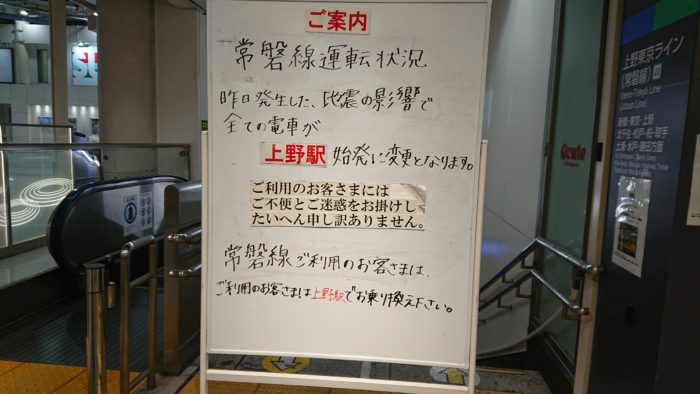 ご案内
常磐線運転状況
昨日発生した、地震の影響で
全ての電車が
上野駅 始発に変更となります。
ご利用のお客さまには
ご不便とご迷惑をお掛けし
たいへん申し訳ありません。
常磐線ご利用のお客さまは、
ご利用のお客さまは上野駅でお乗り換え下さい。
上野東京ライン
(常磐線)
Ueno-Tokyo Line
(Joban Line)
新橋・東京・上野
北千住・松戸・柏・取手
土浦・水戸・勝田方面
Ecute